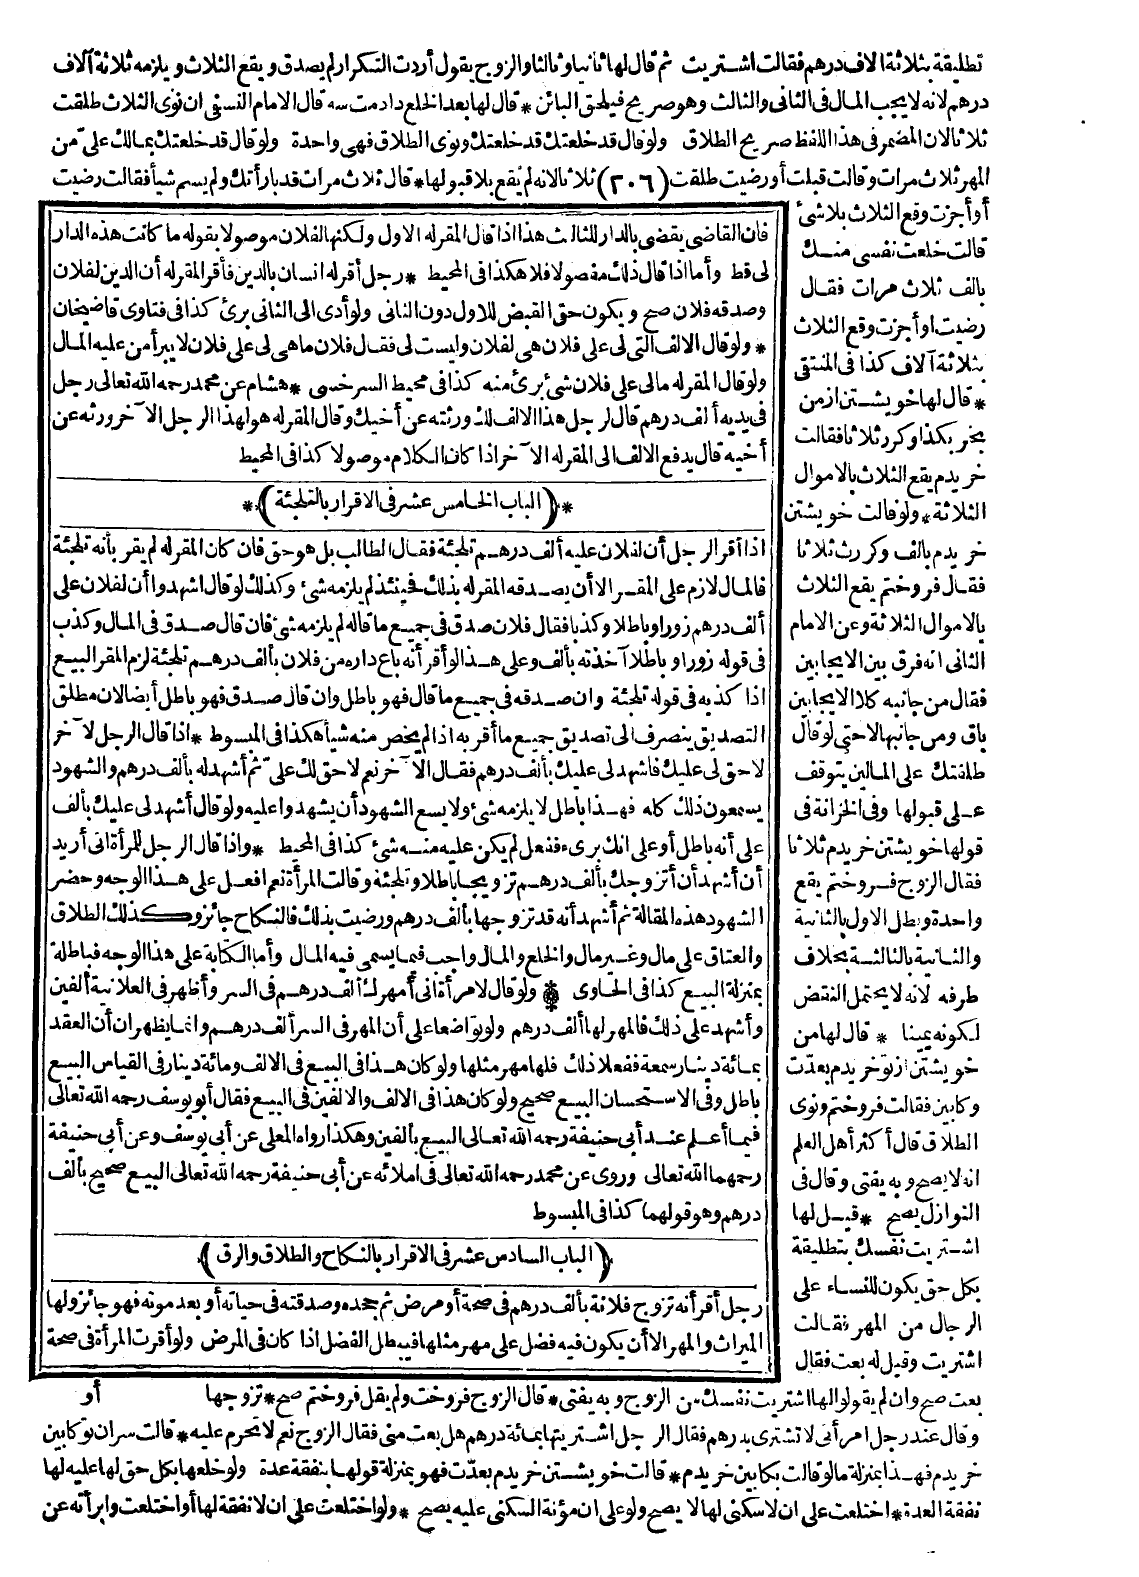 تطليقة بثلاثة الاف درهم فقالت اشتريت ثم قال لها ثانيا وثالثا والزوج يقول أردت التكرار لم يصدق ويقع الثلاث ويلزمه ثلاثة آلاف
درهم لانه لا يجب المال فى الثانى والثالث وهو صريح فيلحق البائن * قال لها بعد الخلع دادمت سه قال الامام النسفى ان نوى الثلاث طلقت
ثلاثا لان المضمر فى هذا اللفظ صريح الطلاق ولو قال قد خلعتك قد خلعتك ونوى الطلاق فهى واحدة ولو قال قد خلعتك بمالك علىّ من
المهر ثلاث مرات وقالت قبلت أو رضيت طلقت (٢٠٦) ثلاثا لانه لم يقع بلا قبولها * قال ثلاث مرات قد بارأتك ولم يسم شيأ فقالت رضيت
أو أجزت وقع الثلاث بلا شئ
قالت خلعت نفسى منك
بالف ثلاث مرات فقال
رضيت او أجزت وقع الثلاث
بثلاثة آلاف كذا فى المنتقى
* قال لها خويشتن از من
بخر بكذا وكرر ثلاثا فقالت
خريدم يقع الثلاث بالاموال
الثلاثة * ولو قالت خويشتن
خريدم بالف وكررت ثلاثا
فقال فروختم يقع الثلاث
بالاموال الثلاثة وعن الامام
الثانى انه فرق بين الايجابين
فقال من جانبه كلا الايجابين
باق ومن جانبها لا حتى لو قال
طلقتك على المالين يتوقف
على قبولها وفى الخزانة فى
قولها خويشتن خريدم ثلاثا
فقال الزوج فروختم يقع
واحدة وبطل الاول بالثانية
والثانية بالثالثة بخلاف
طرفه لانه لا يحتمل النقض
لكونه يمينا * قال لها من
خويشتن از تو خريدم بعدّت
وكابين فقالت فروختم ونوى
الطلاق قال أكثر أهل العلم
انه لا يصح وبه يفتى وقال فى
النوازل يصح * قيل لها
اشتريت نفسك بتطليقة
بكل حق يكون للنساء على
الرجال من المهر فقالت
اشتريت وقيل له بعت فقال
فان القاضى يقضى بالدار للثالث هذا اذا قال المقر له الاول ولكنها لفلان موصولا بقوله ما كانت هذه الدار
لى قط وأما اذا قال ذلك مفصولا فلا هكذا فى المحيط * رجل أقر له انسان بالدين فأقر المقر له أن الدين لفلان
وصدقه فلان صح ويكون حق القبض للاول دون الثانى ولو أدى الى الثانى برئ كذا فى فتاوى قاضيخان
* ولو قال الالف التى لى على فلان هى لفلان وليست لى فقال فلان ما هى لى على فلان لا يبرأ من عليه المال
ولو قال المقر له مالى على فلان شئ برئ منه كذا فى محيط السرخسى * هشام عن محمد رحمه الله تعالى رجل
فى يديه ألف درهم قال لرجل هذا الالف لك ورثته عن أخيك وقال المقر له هو لهذا الرجل الآخر ورثه عن
أخيه قال يدفع الالف الى المقر له الآخر اذا كان الكلام موصولا كذا فى المحيط
* (الباب الخامس عشر فى الاقرار بالتلجئة) *
اذا أقر الرجل أن لفلان عليه ألف درهم تلجئة فقال الطالب بل هو حق فان كان المقر له لم يقر بأنه تلجئة
فالمال لازم على المقر الا أن يصدقه المقر له بذلك فحينئذ لم يلزمه شئ وكذلك لو قال اشهدوا أن لفلان على
ألف درهم زورا وباطلا وكذبا فقال فلان صدق فى جميع ما قاله لم يلزمه شئ فان قال صدق فى المال وكذب
فى قوله زورا وباطلا آخذته بألف وعلى هذا لو أقر أنه باع داره من فلان بألف درهم تلجئة لزم المقر البيع
اذا كذبه فى قوله تلجئة وان صدقه فى جميع ما قال فهو باطل وان قال صدق فهو باطل أيضا لان مطلق
التصديق ينصرف الى تصديق جميع ما أقر به اذا لم يخص منه شيأ هكذا فى المبسوط * اذا قال الرجل لآخر
لا حق لى عليك فاشهد لى عليك بألف درهم فقال الآخر نعم لا حق لك علىّ ثم أشهد له بألف درهم والشهود
يسمعون ذلك كله فهذا باطل لا يلزمه شئ ولا يسع الشهود أن يشهدوا عليه ولو قال أشهد لى عليك بألف
على أنه باطل أو على انك برىء ففعل لم يكن عليه منه شئ كذا فى المحيط * واذا قال الرجل للمرأة انى أريد
أن أشهد أن أتزوجك بألف درهم تزويجا باطلا وتلجئة وقالت المرأة نعم افعل على هذا الوجه وحضر
الشهود هذه المقالة ثم أشهد أنه قد تزوجها بألف درهم ورضيت بذلك فالنكاح جائز وكذلك الطلاق
والعتاق على مال وغير مال والخلع والمال واجب فيما يسمى فيه المال وأما الكتابة على هذا الوجه فباطلة
بمنزلة البيع كذا فى الحاوى * ولو قال لامرأة انى أمهرك ألف درهم فى السر وأظهر فى العلانية ألفين
وأشهد على ذلك فالمهر لها ألف درهم ولو تواضعا على أن المهر فى السر ألف درهم وانما يظهران أن العقد
بمائة دينار سمعة ففعلا ذلك فلها مهر مثلها ولو كان هذا فى البيع فى الالف ومائة دينار فى القياس البيع
باطل وفى الاستحسان البيع صحيح ولو كان هذا فى الالف والالفين فى البيع فقال أبو يوسف رحمه الله تعالى
فيما أعلم عند أبى حنيفة رحمه الله تعالى البيع بألفين وهكذا رواه المعلى عن أبى يوسف وعن أبى حنيفة
رحمهما الله تعالى وروى عن محمد رحمه الله تعالى فى املائه عن أبى حنيفة رحمه الله تعالى البيع صحيح بألف
درهم وهو قولهما كذا فى المبسوط
(الباب السادس عشر فى الاقرار بالنكاح والطلاق والرق)
رجل أقر أنه تزوج فلانة بألف درهم فى صحة أو مرض ثم جحده وصدقته فى حياته أو بعد موته فهو جائز ولها
الميراث والمهر الا أن يكون فيه فضل على مهر مثلها فيبطل الفضل اذا كان فى المرض ولو أقرت المرأة فى صحة
أو
بعت صح وان لم يقولوا لها اشتريت نفسك من الزوج وبه يفتى * قال الزوج فروخت ولم يقل فروختم صح * تزوجها
وقال عند رجل امرأتى لا تشترى بدرهم فقال الرجل اشتريتها بمائة درهم هل بعت منى فقال الزوج نعم لا تحرم عليه * قالت سران تو كابين
خريدم فهذا بمنزلة ما لو قالت بكابين خريدم * قالت خويشتن خريدم بعدّت فهو بمنزلة قولها بنفقة عدة ولو خلعها بكل حق لها عليه لها
نفقة العدة * اختلعت على ان لا سكنى لها لا يصح ولو على ان مؤنة السكنى عليه يصح * ولو اختلعت على ان لا نفقة لها أو اختلعت وابرأته عن